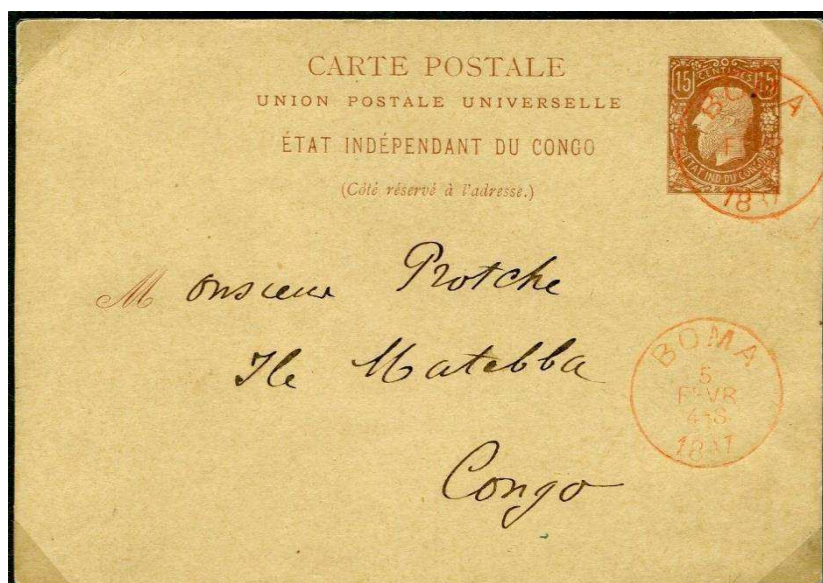 CARTE POSTALE
UNION POSTALE UNIVERSELLE
ÉTAT INDÉPENDANT DU CONGO
(Côté réservé à l'adresse.)
15 CENTIMES 15
ETAT IND. DU CONGO
BOMA
Monsieur Protche
Ile Matebba
Congo
BOMA
5
FEVR